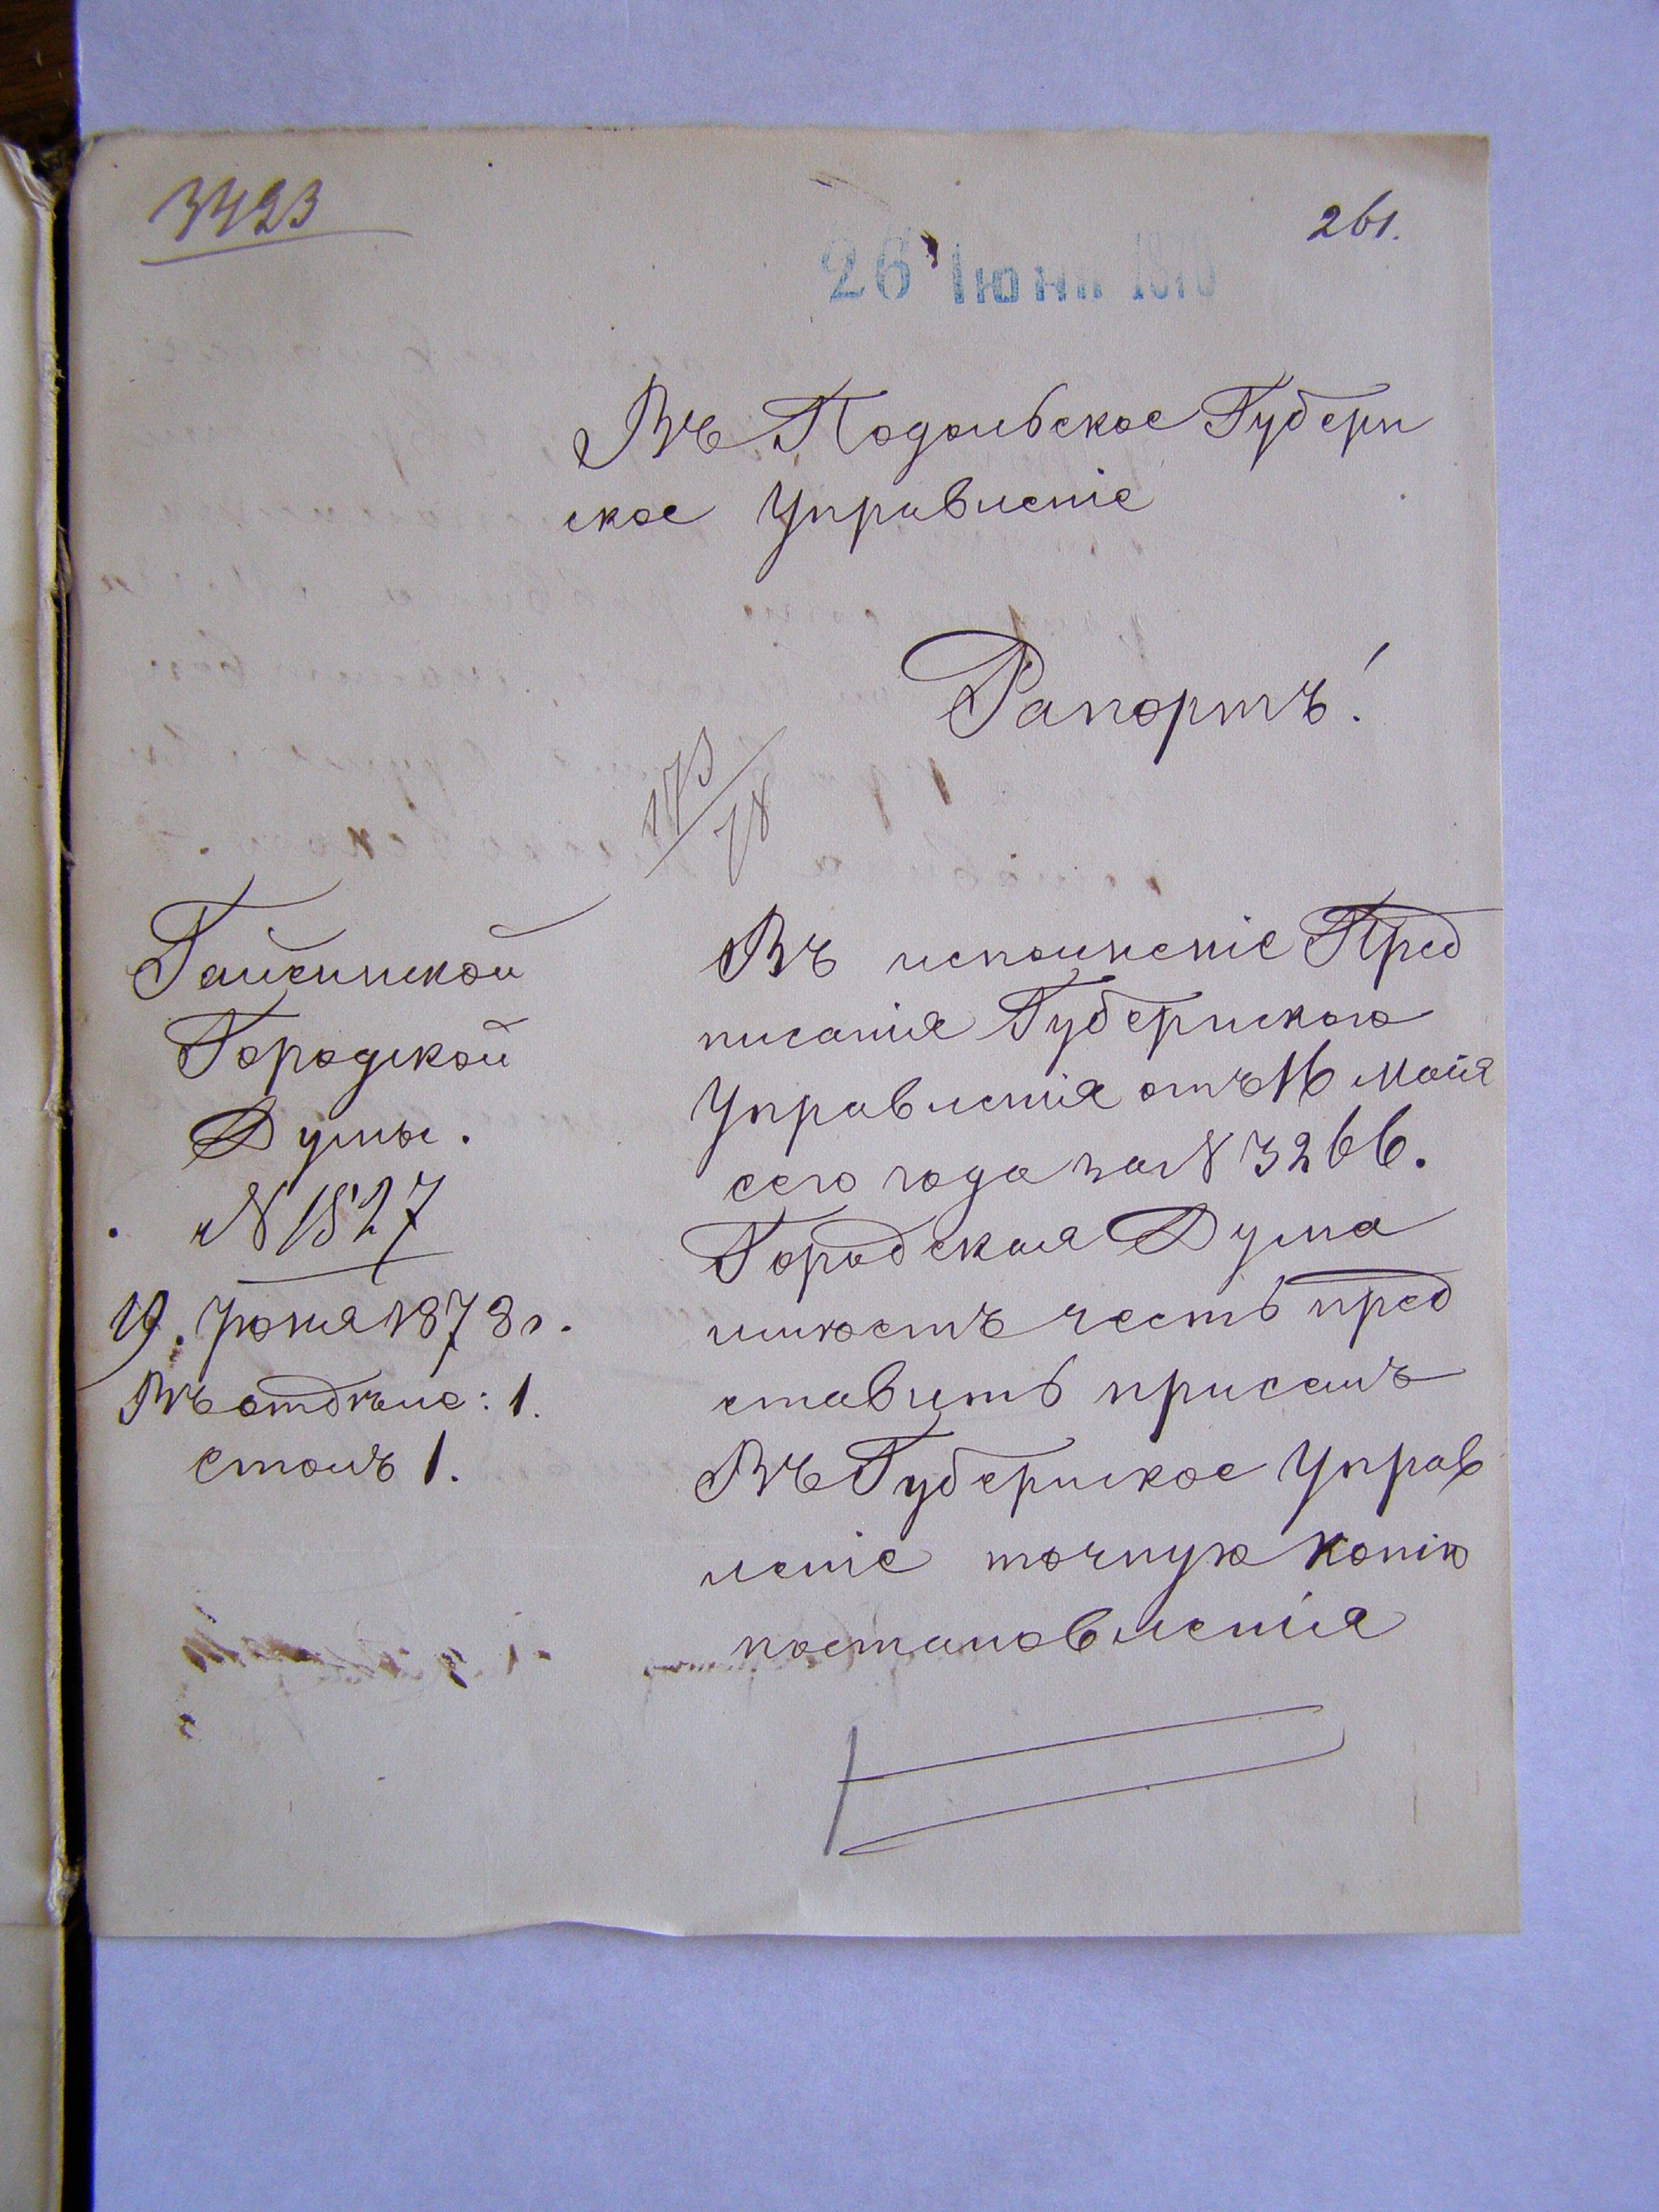 3423
261.
26 Іюня 1878
Въ Подольское Губерн
ское Управленіе
Рапортъ!
173/78
Гайсинской
Городской
Думы.
№ 1527
19. Іюня 1878 г.
Въ отдѣле: 1.
столъ 1.
Въ исполненіе Пред
писанія Губернского
Управленія отъ 16 мaія
сего года за № 3266.
Городская Дума
имѣетъ честь пред
ставить присемъ
Въ Губернское Управ
леніе точную копію
постановленія